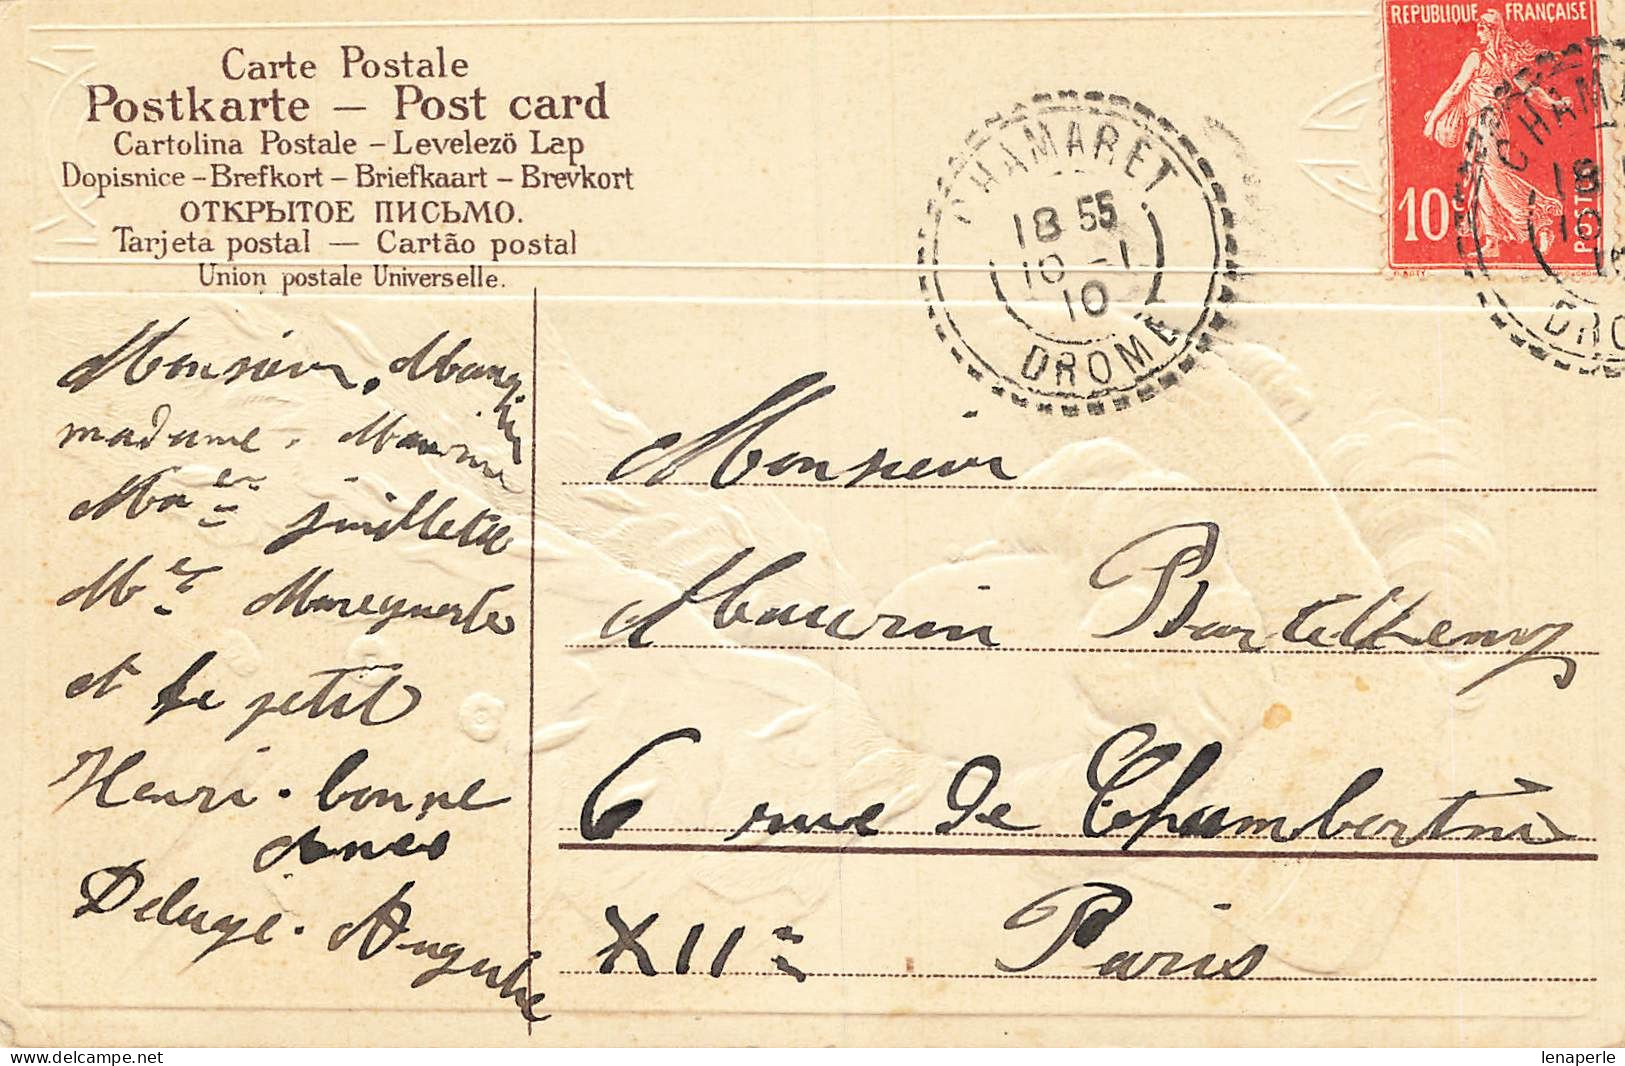 Carte Postale
Postkarte — Post card
Cartolina Postale – Levelezö Lap
Dopisnice – Brefkort – Briefkaart – Brevkort
ОТКРЫТОЕ ПИСЬМО.
Tarjeta postal — Cartão postal
Union postale Universelle.
REPUBLIQUE FRANÇAISE
10c
POSTES
CHAMARET
18 55
10 - 1
10
DROME
CHAMA
18
10
DRO
Monsieur.
madame. Maurin
Juillette
Mareguerte
et le petit
Henri. bonne
anneé
Deluge. Auguste
Monsieur
Maurin Barthelemy
6 rue de Chambertin
XIIe Paris
lenaperle